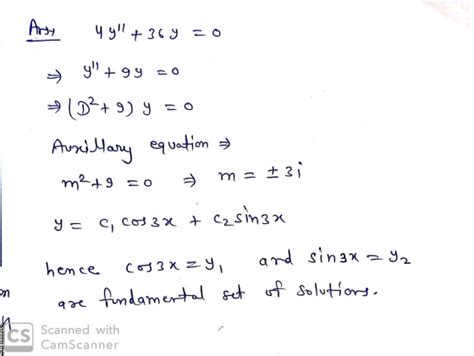 Ans, 4y'' + 36y = 0
⇒ y'' + 9y = 0
⇒ (D² + 9) y = 0
Auxillary equation ⇒
m² + 9 = 0 ⇒ m = ± 3i
y = c₁ cos3x + c₂ sin3x
hence cos3x = y₁ and sin3x = y₂
are fundamental set of solutions.
CS Scanned with
CamScanner